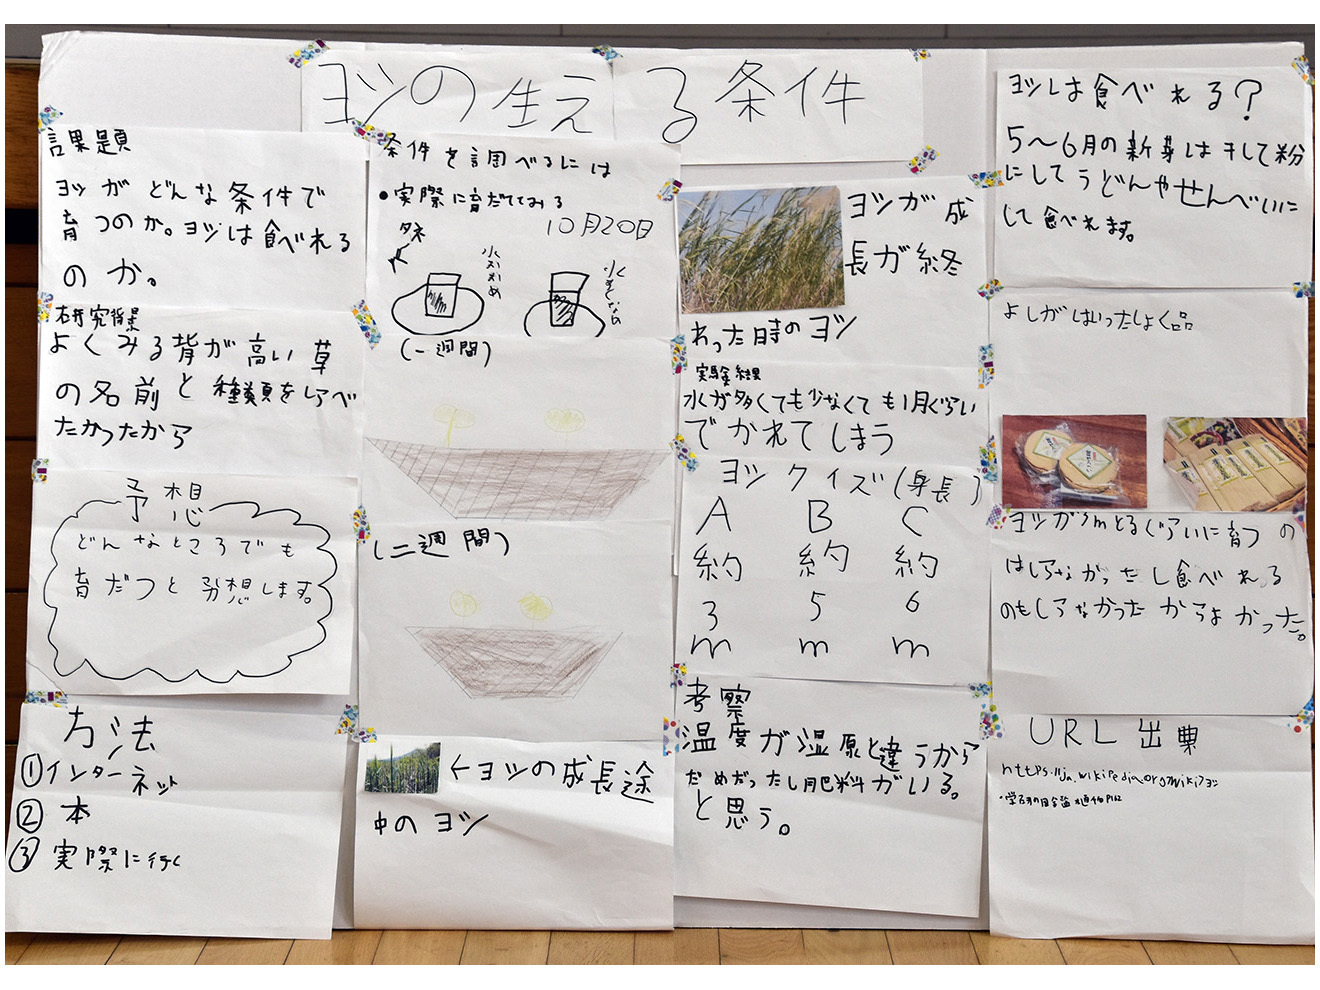 ヨシの生える条件
課題
ヨシがどんな条件で
育つのか。ヨシは食べれる
のか。
研究背景
よくみる背が高い草
の名前と種類をしらべ
たかったから
予想
どんなところでも
育だつと予想します。
方法
①インターネット
②本
③実際に行く
条件を調べるには
•実際に育だててみる
10月20日
タネ
水おおめ
水すくなめ
(一週間)
(二週間)
←ヨシの成長途
中のヨシ
ヨシが成
長が終
わった時のヨシ
実験結果
水が多くても少なくても1月ぐらい
でかれてしまう
ヨシクイズ(身長)
A B C
約 約 約
3 5 6
m m m
考察
温度が湿原と違うから
だめだったし肥料がいる。
と思う。
ヨシは食べれる?
5〜6月の新芽は干して粉
にしてうどんやせんべいに
して食べれます。
よしがはいったしょく品
ヨシが5mとるぐらいに育つの
はしらなかったし食べれる
のもしらなかったからよかった。
URL出典
https://ja.wikipedia.org?wiki?ヨシ